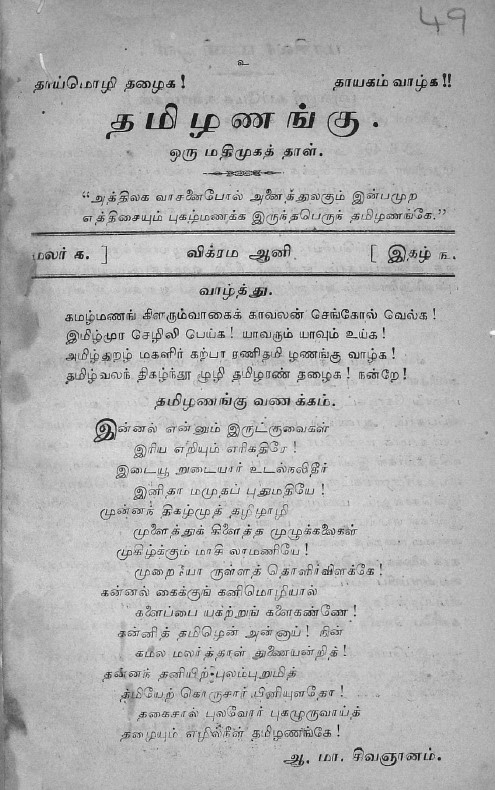 49
உ
தாய்மொழி தழைக! தாயகம் வாழ்க!!
தமிழணங்கு.
ஒரு மதிமுகத் தாள்.
"அத்திலக வாசனைபோல் அனைத்துலகும் இன்பமுற
எத்திசையும் புகழ்மணக்க இருந்தபெருந் தமிழணங்கே."
மலர் க. ] விக்ரம ஆனி [ இதழ் ந.
வாழ்த்து.
கமழ்மணங் கிளரும்வாகைக் காவலன் செங்கோல் வெல்க!
இமிழ்முர செழிலி பெய்க! யாவரும் யாவும் உய்க!
அமிழ்துறழ் மகளிர் கற்பா ரணிதமி ழணங்கு வாழ்க!
தமிழ்வலந் திகழ்ந்தூ ழூழி தமிழாண் தழைக! நன்றே!
தமிழணங்கு வணக்கம்.
இன்னல் என்னும் இருட்குவைகள்
இரிய எறியும் எரிகதிரே!
இடையூ றுடையார் உடல்நலிதீர்
இனிதா மமுதப் புதுமதியே!
முன்னந் திகழ்முத் தமிழாழி
முளைத்துக் கிளைத்த முழுக்கலைகள்
முகிழ்க்கும் மாசி லாமணியே!
முறையோ ருள்ளத் தொளிர்விளக்கே!
கன்னல் கைக்குங் கனிமொழியால்
களைப்பை யகற்றுங் களைகண்ணே!
கன்னித் தமிழென் அன்னாய்! நின்
கமல மலர்த்தாள் துணையன்றித்!
தன்னந் தனியிற் புலம்புறுமித்
தமியேற் கொருசார் பினியுளதோ!
தகைசால் புலவோர் புகழுருவாய்த்
தழையும் எழில்நீள் தமிழணங்கே!
ஆ. மா. சிவஞானம்.